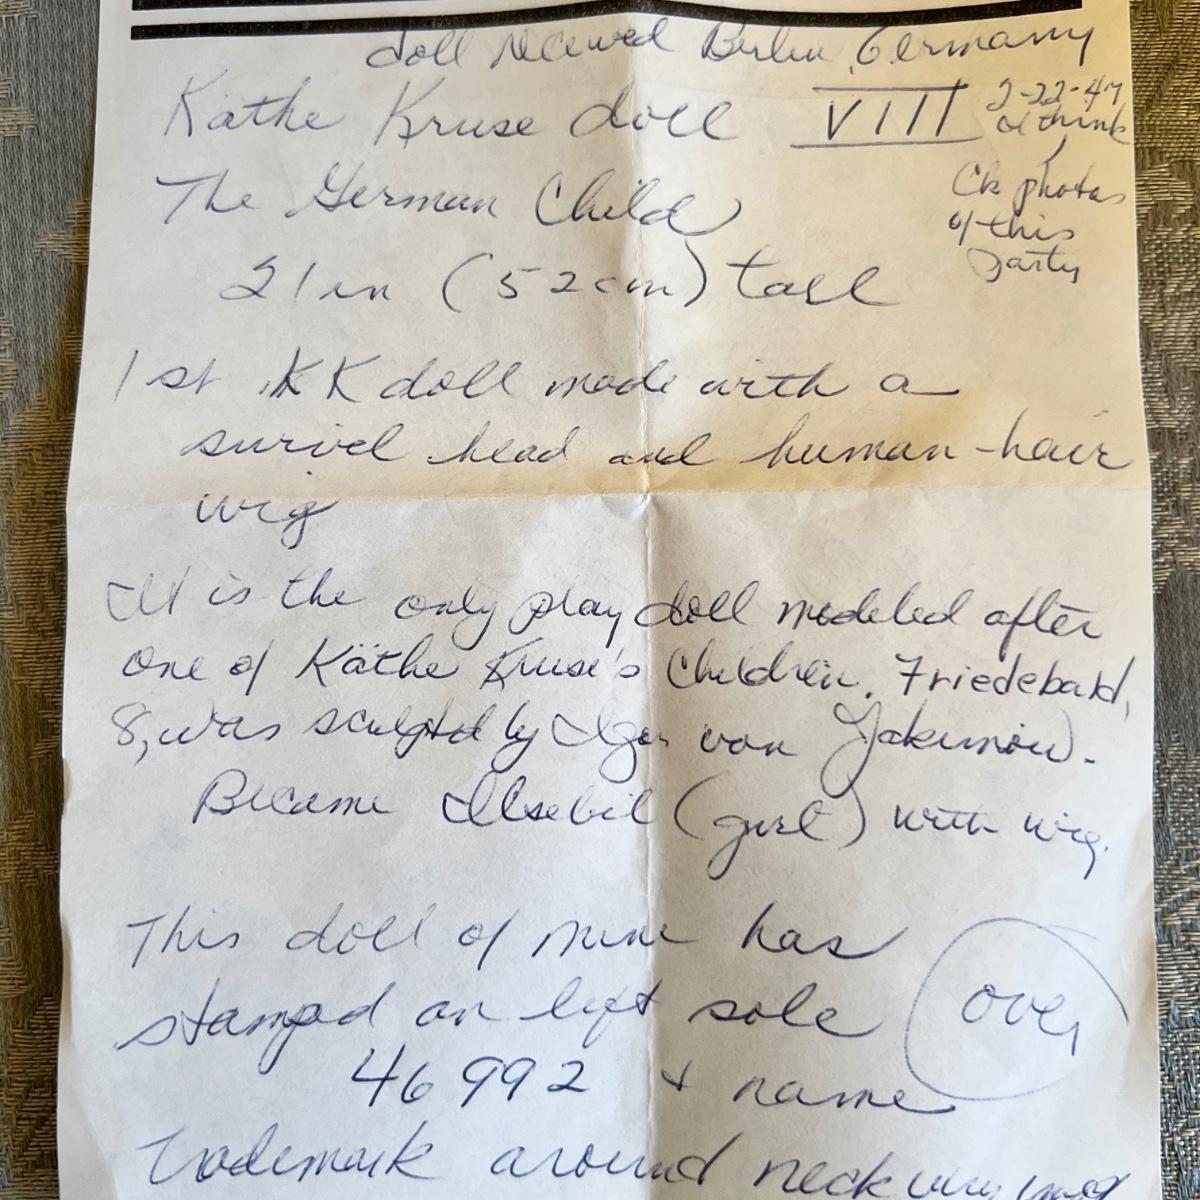 doll received Berlin, Germany
Käthe Kruse doll VIII 2-22-47
I think
The German Child
Ck photos
of this
party
21 in (52cm) tall
1st KK doll made with a
swivel head and human-hair
wig
It is the only play doll modeled after
one of Käthe Kruse's children. Friedebald,
8, was sculpted by Igor von Jakimow.
Became Ilsebil (girl) with wig.
This doll of mine has
stamped on left sole
over
46992 + name
Trademark around neck